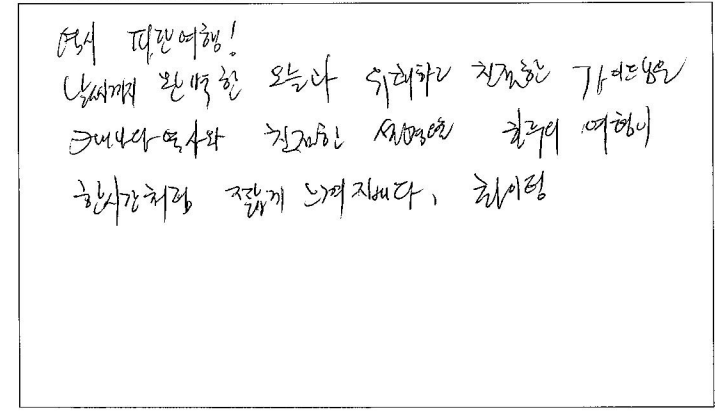 역시 파란여행!
날씨까지 완벽한 오늘과 유쾌하고 친절한 가이드님은
역사와 친절한 설명으로 하루의 여행이
한시간처럼 짧게 느껴지네다, 화이팅